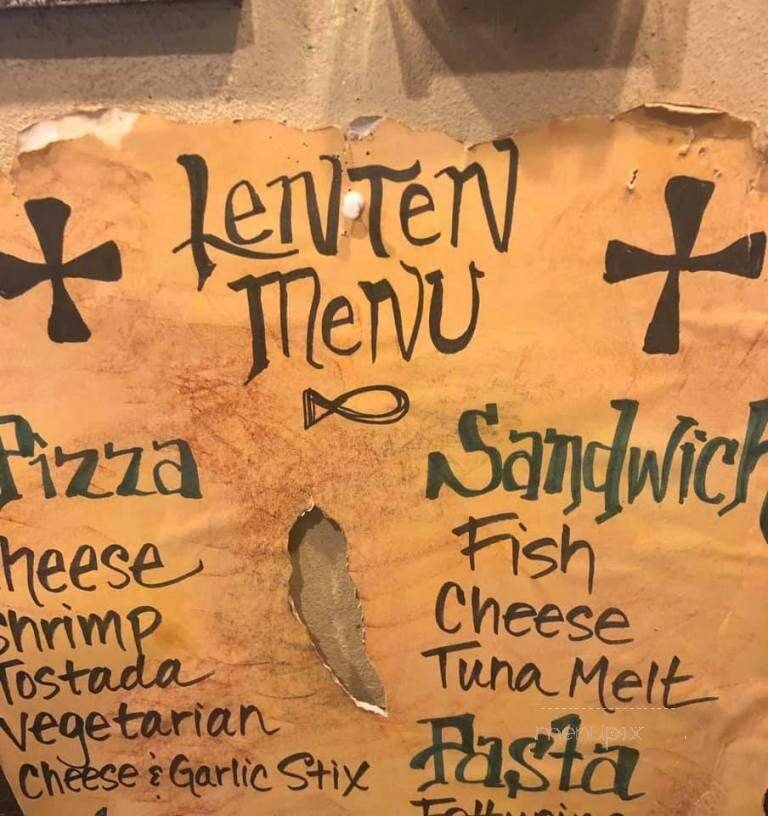 Lenten
Menu
Pizza
Cheese
Shrimp
Tostada
Vegetarian
Cheese & Garlic Stix
Sandwich
Fish
Cheese
Tuna Melt
Pasta
menupix